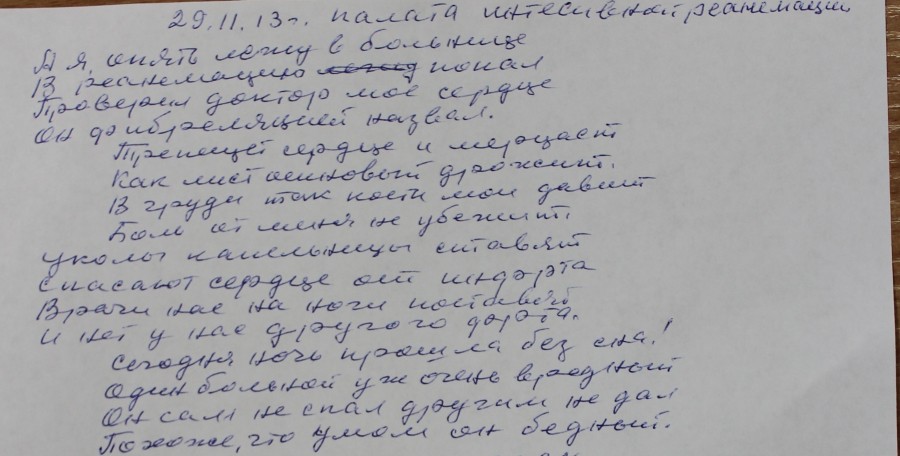 29.11.13г. палата интесивной реанемации
А я, опять лежу в больнице
В реанемацию попал
Проверил доктор моё сердце
Он фибреляцией назвал.
Трепещет сердце и мерцает
Как лист осиновый дрожит.
В груди так кости мои давит
Боль от меня не убежит.
Уколы капельницы ставят
Спасают сердце от инфрта
Врачи нас на ноги поставят
И нет у нас другого фрта.
Сегодня ночь прошла без сна!
Один больной уж очень вредный
Он сам не спал другим не дал
Похоже, что умом он бедный.